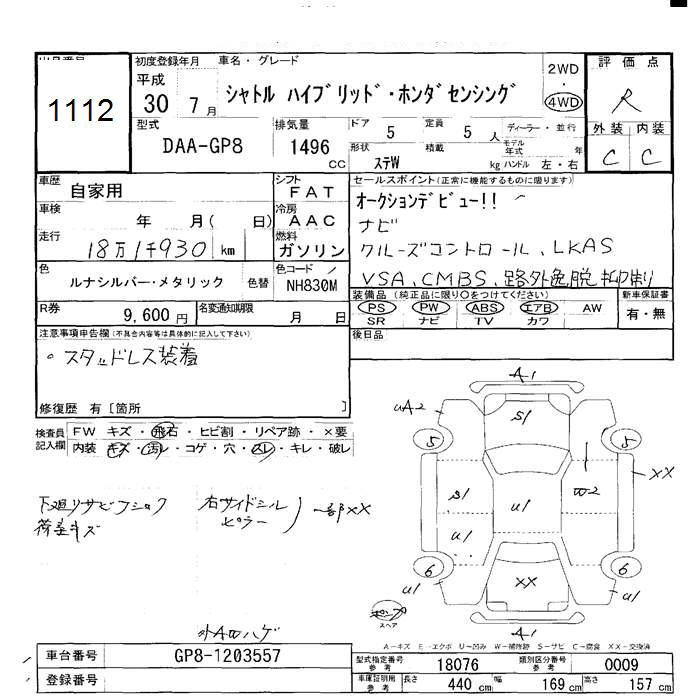 1112
初度登録年月
車名・グレード
平成
30 7 月
シャトル ハイブリッド・ホンダセンシング
2WD
・
4WD
評価点
R
型式
DAA-GP8
排気量
1496 CC
ドア 5
定員 5 人
ディーラー・並行
形状 ステW
積載 kg
モデル年式 年
ハンドル 左・右
外装 内装
C C
車歴
自家用
シフト
FAT
セールスポイント(正常に機能するものに限ります)
オークションデビュー!!
ナビ
クルーズコントロール、LKAS
VSA、CMBS、路外逸脱抑制
車検
年 月( 日)
冷房
AAC
走行
18万1千930 km
燃料
ガソリン
色
ルナシルバー・メタリック
色替
色コード
NH830M
装備品(純正品に限り○をつけてください)
PS PW ABS エアB AW
SR ナビ TV カワ
新車保証書
有・無
R券
9,600 円
名変通知期限
月 日
後日品
注意事項申告欄(不具合内容等は具体的に記入して下さい)
。スタッドレス装着
修復歴 有 [箇所 ]
検査員記入欄
FW キズ・飛石・ヒビ割・リペア跡・×要
内装 キズ・汚レ・コゲ・穴・スレ・キレ・破レ
下廻リサビフショク
荷差キズ
右サイドシル
ピラー
一部XX
A1
uA2
S1
5
5
XX
S1
U1
W2
U1
6
6
XX
U1
U1
スペア
A1
A-キズ E-エクボ U-凹み W-補修跡 S-サビ C-腐食 XX-交換済
車台番号
GP8-1203557
登録番号
型式指定番号 参考
18076
類別区分番号 参考
0009
車庫証明用 参考
長さ 440 cm
幅 169 cm
高さ 157 cm